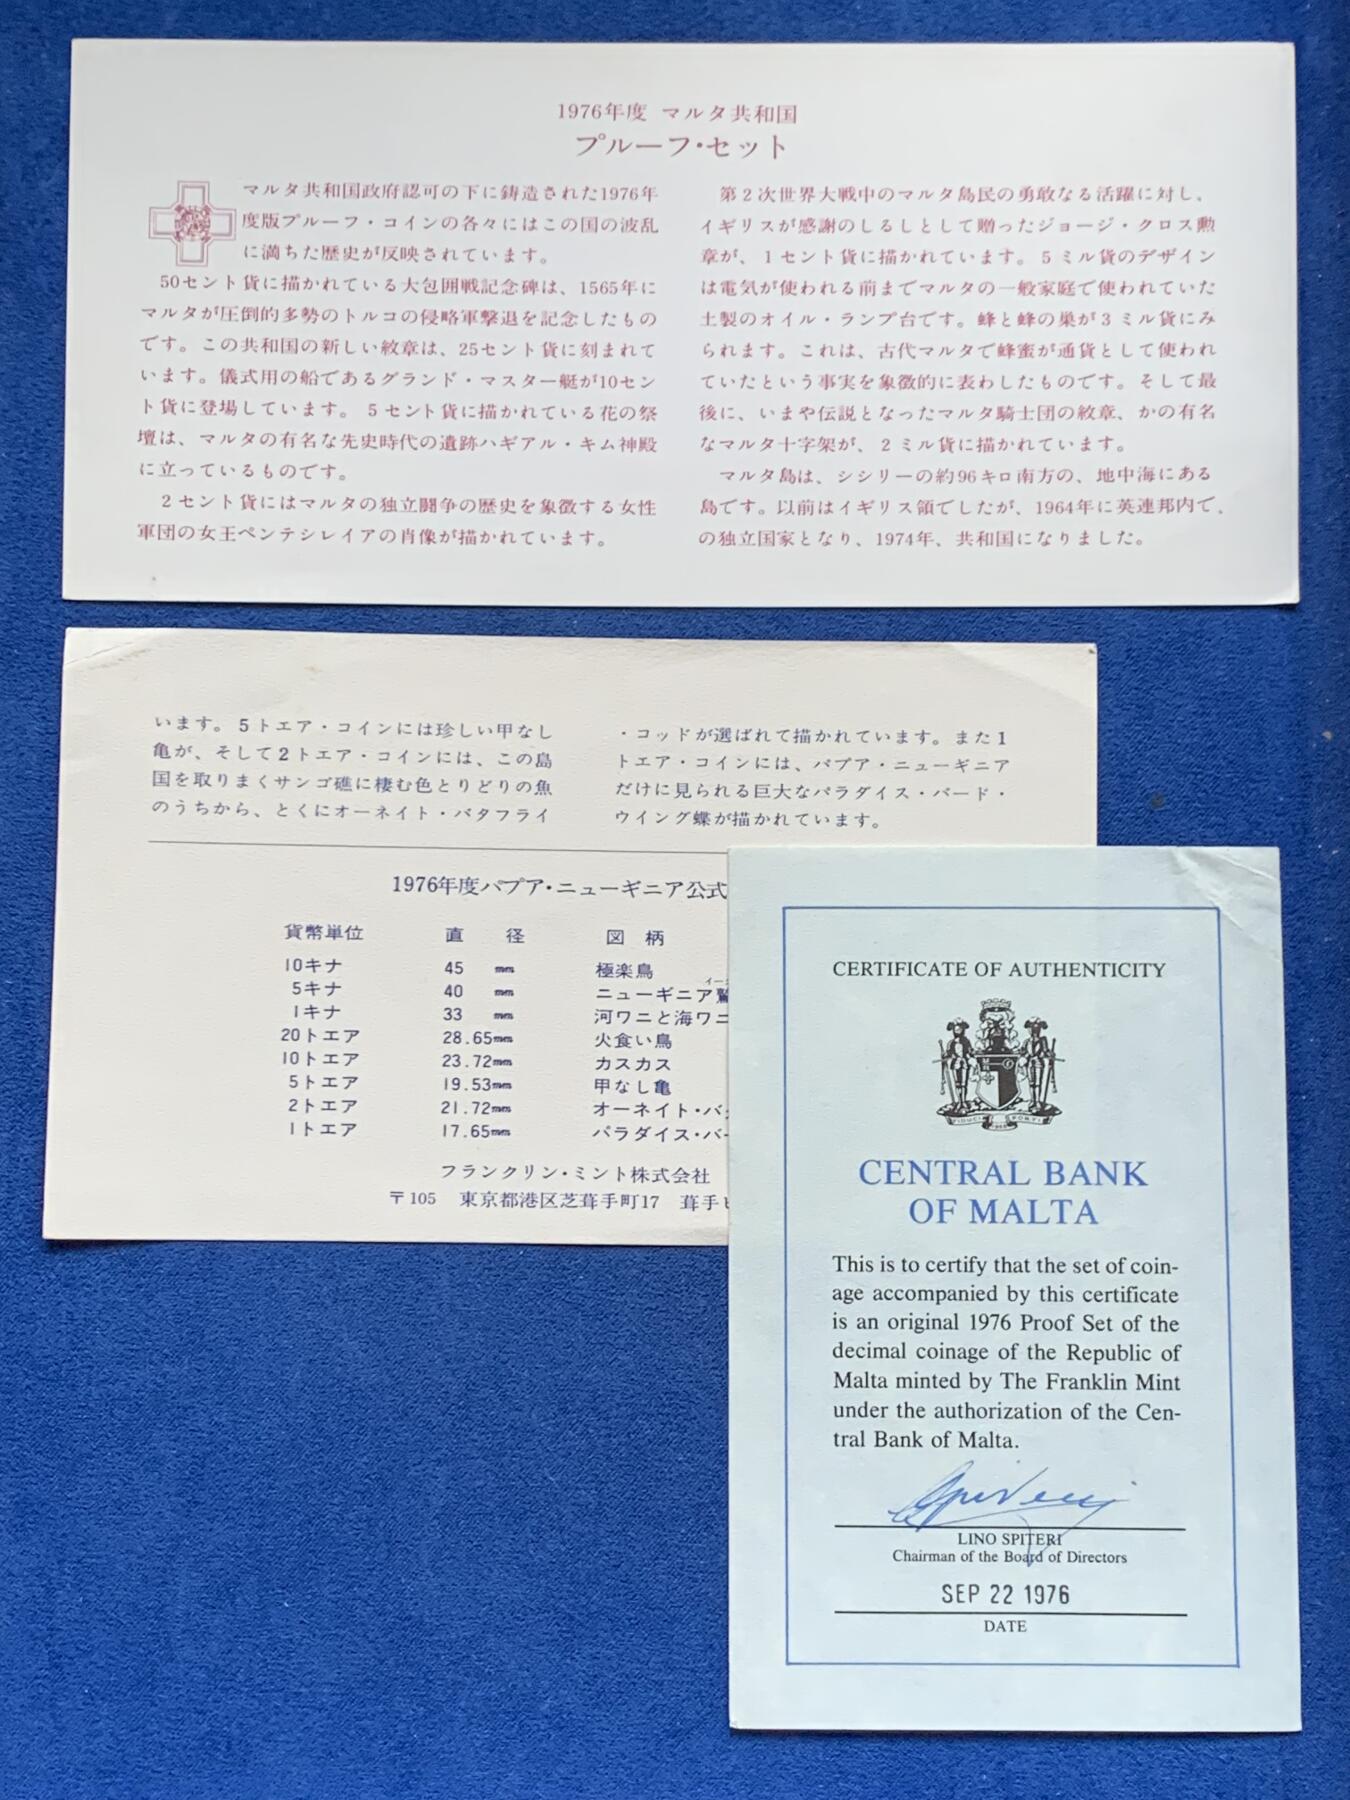 1976年度 マルタ共和国
プルーフ・セット
マルタ共和国政府認可の下に鋳造された1976年
度版プルーフ・コインの各々にはこの国の波乱
に満ちた歴史が反映されています。
50セント貨に描かれている大包囲戦記念碑は、1565年に
マルタが圧倒的多勢のトルコの侵略軍撃退を記念したもの
です。この共和国の新しい紋章は、25セント貨に刻まれて
います。儀式用の船であるグランド・マスター艇が10セン
ト貨に登場しています。5セント貨に描かれている花の祭
壇は、マルタの有名な先史時代の遺跡ハギアル・キム神殿
に立っているものです。
2セント貨にはマルタの独立闘争の歴史を象徴する女性
軍団の女王ペンテシレイアの肖像が描かれています。
第2次世界大戦中のマルタ島民の勇敢なる活躍に対し、
イギリスが感謝のしるしとして贈ったジョージ・クロス勲
章が、1セント貨に描かれています。5ミル貨のデザイン
は電気が使われる前までマルタの一般家庭で使われていた
土製のオイル・ランプ台です。蜂と蜂の巣が3ミル貨にみ
られます。これは、古代マルタで蜂蜜が通貨として使われ
ていたという事実を象徴的に表わしたものです。そして最
後に、いまや伝説となったマルタ騎士団の紋章、かの有名
なマルタ十字架が、2ミル貨に描かれています。
マルタ島は、シシリーの約96キロ南方の、地中海にある
島です。以前はイギリス領でしたが、1964年に英連邦内で、
の独立国家となり、1974年、共和国になりました。
います。5トエア・コインには珍しい甲なし
亀が、そして2トエア・コインには、この島
国を取りまくサンゴ礁に棲む色とりどりの魚
のうちから、とくにオーネイト・バタフライ
・コッドが選ばれて描かれています。また1
トエア・コインには、パプア・ニューギニア
だけに見られる巨大なパラダイス・バード・
ウイング蝶が描かれています。
1976年度パプア・ニューギニア公式
貨幣単位 直 径 図 柄
10キナ 45 mm 極楽鳥
5キナ 40 mm ニューギニア鷲
1キナ 33 mm 河ワニと海ワニ
20トエア 28.65mm 火食い鳥
10トエア 23.72mm カスカス
5トエア 19.53mm 甲なし亀
2トエア 21.72mm オーネイト・バ
1トエア 17.65mm パラダイス・バー
フランクリン・ミント株式会社
〒105 東京都港区芝葺手町17 葺手ビ
CERTIFICATE OF AUTHENTICITY
CENTRAL BANK
OF MALTA
This is to certify that the set of coin-
age accompanied by this certificate
is an original 1976 Proof Set of the
decimal coinage of the Republic of
Malta minted by The Franklin Mint
under the authorization of the Cen-
tral Bank of Malta.
LINO SPITERI
Chairman of the Board of Directors
SEP 22 1976
DATE